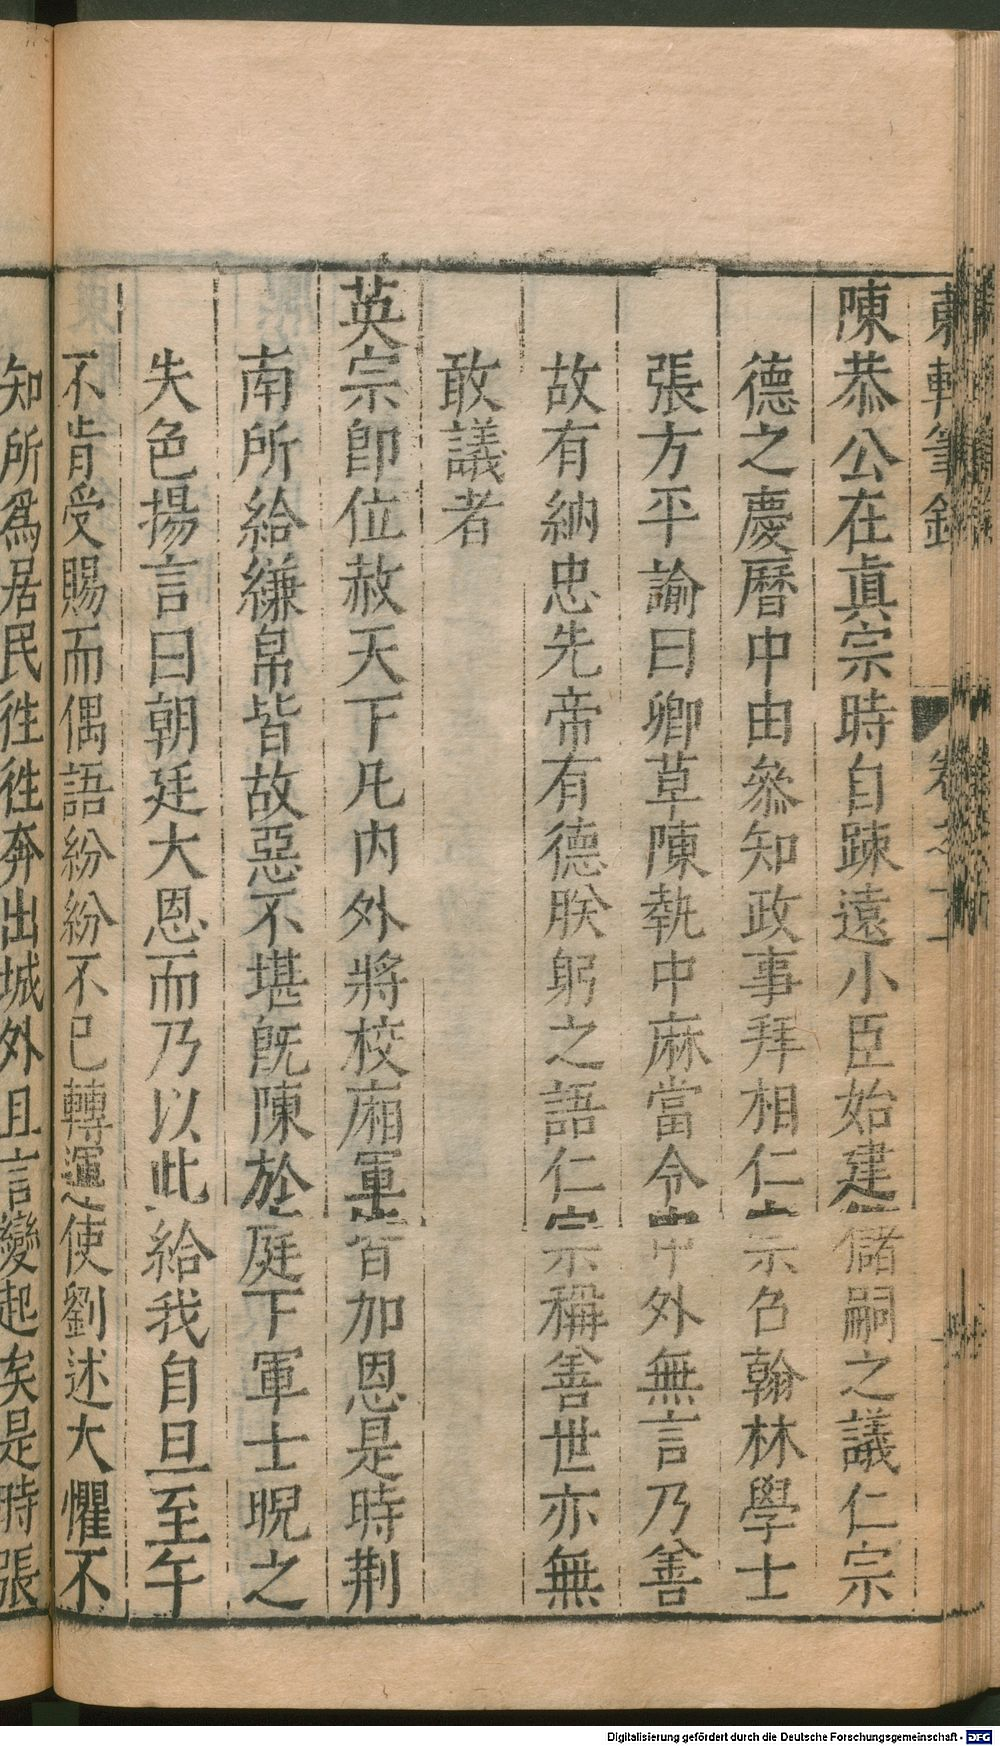 東軒筆錄 卷之十一
陳恭公在眞宗時自踈遠小臣始建儲嗣之議仁宗
德之慶曆中由叅知政事拜相仁宗召翰林學士
張方平諭曰卿草陳執中麻當令中外無言乃善
故有納忠先帝有德朕躬之語仁宗稱善世亦無
敢議者
英宗卽位赦天下凡内外將校廂軍皆加恩是時荆
南所給縑帛皆故惡不堪旣陳於庭下軍士睨之
失色揚言曰朝廷大恩而乃以此給我自旦至午
不肯受賜而偶語紛紛不已轉運使劉述大懼不
知所爲居民徃徃奔出城外且言變起矣是時張
Digitalisierung gefördert durch die Deutsche Forschungsgemeinschaft - DFG